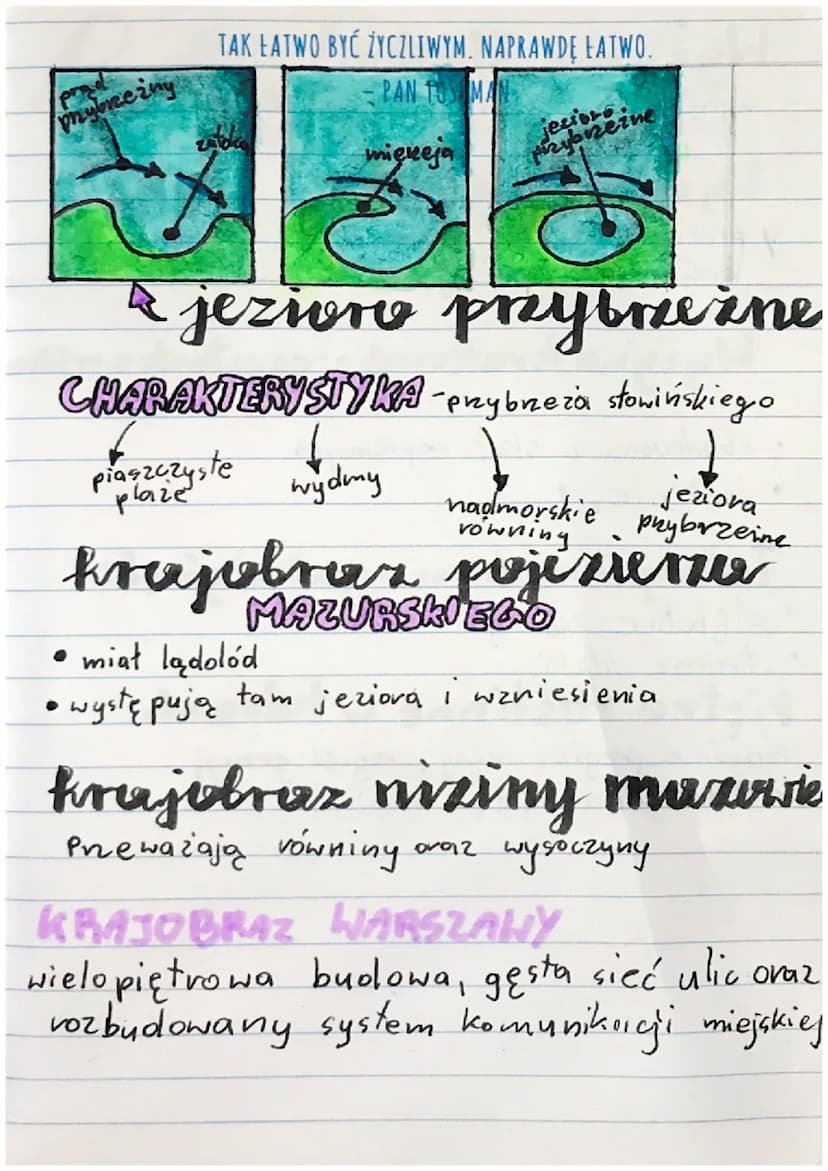 TAK ŁATWO BYĆ ŻYCZLIWYM. NAPRAWDĘ ŁATWO.
- PAN TOSMAN
prąd
przybrzeżny
zatoka
mierzeja
jezioro
przybrzeżne
jezioro przybrzeżne
CHARAKTERYSTYKA - przybrzeża słowińskiego
piaszczyste
plaże
wydmy
nadmorskie
równiny
jeziora
przybrzeżne
krajobraz pojezierza
MAZURSKIEGO
• miał lądolód
• występują tam jeziora i wzniesienia
krajobraz niziny mazowie
Przeważają równiny oraz wysoczyny
KRAJOBRAZ WARSZAWY
wielopiętrowa budowa, gęsta sieć ulic oraz
rozbudowany system komunikacji miejskiej